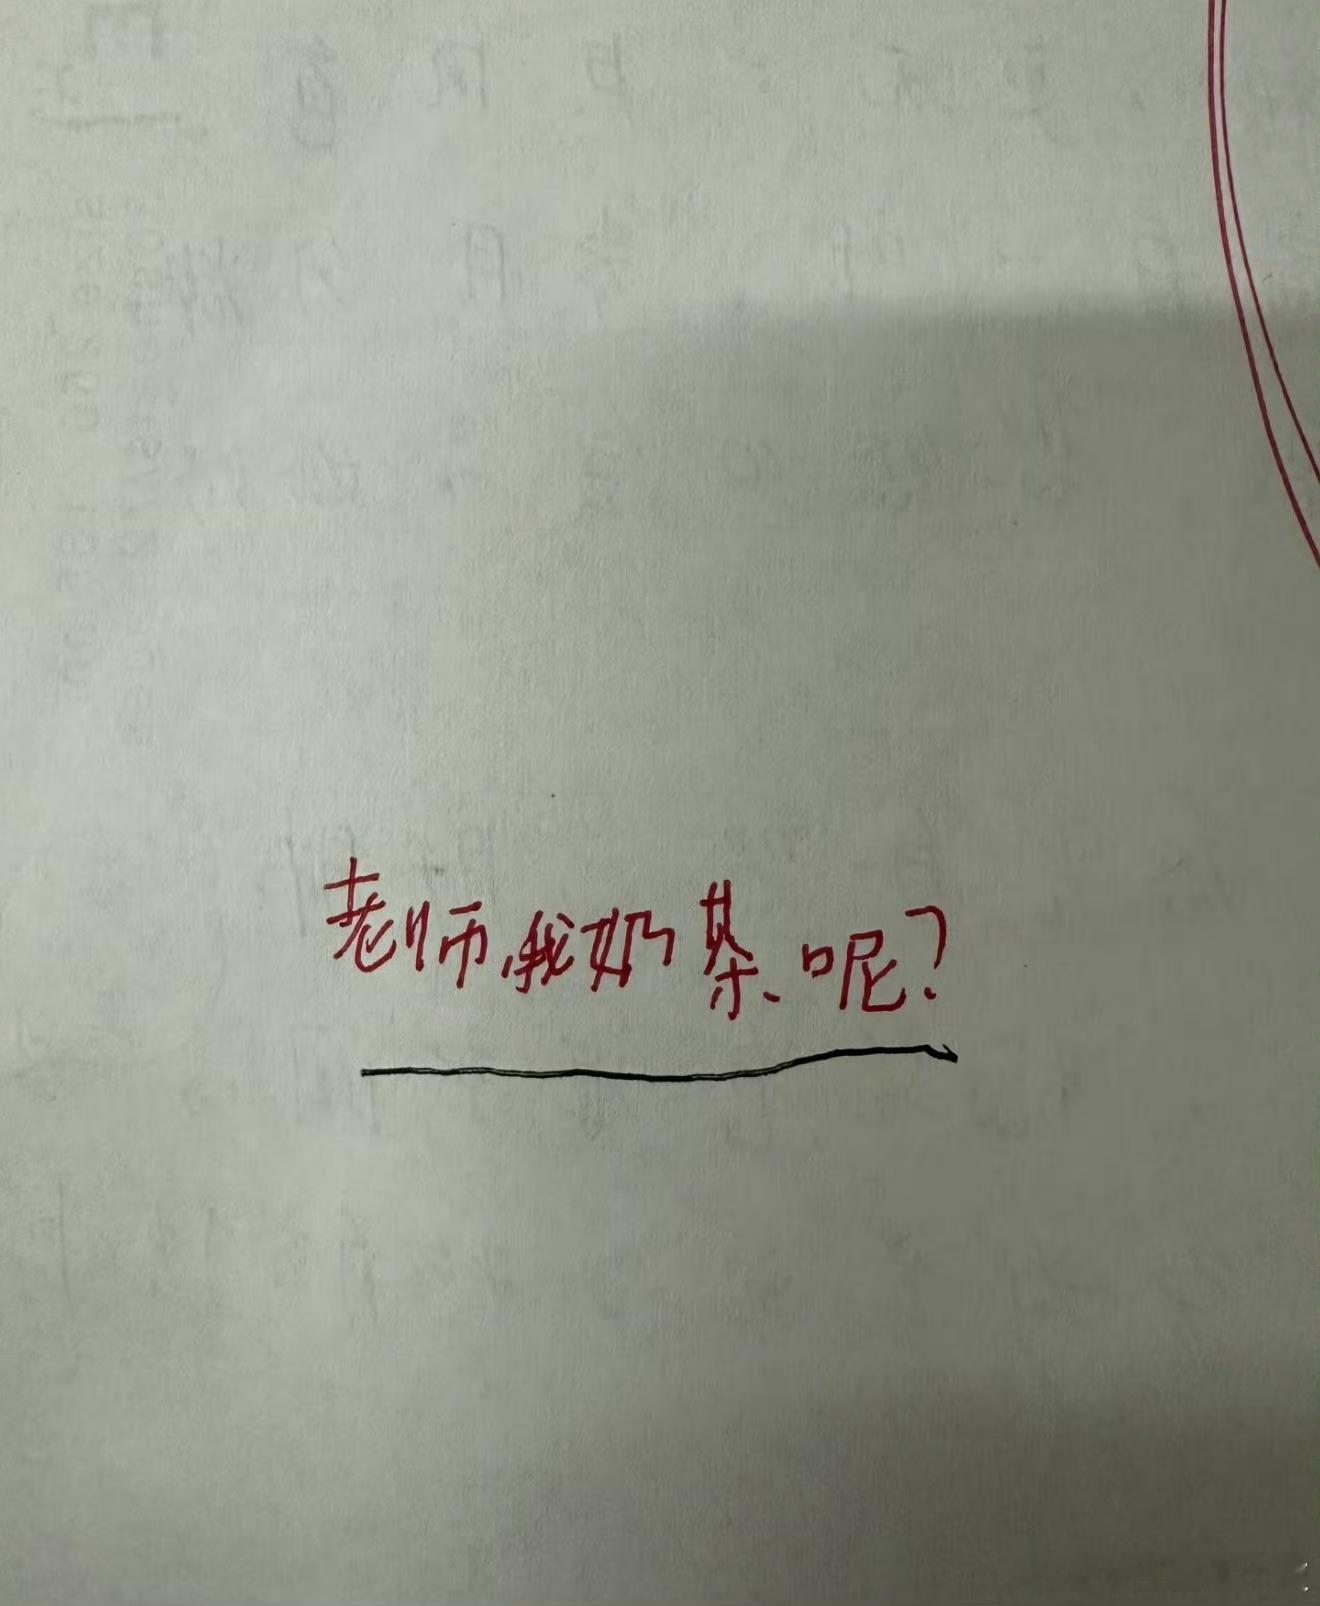 老师,我奶茶呢?